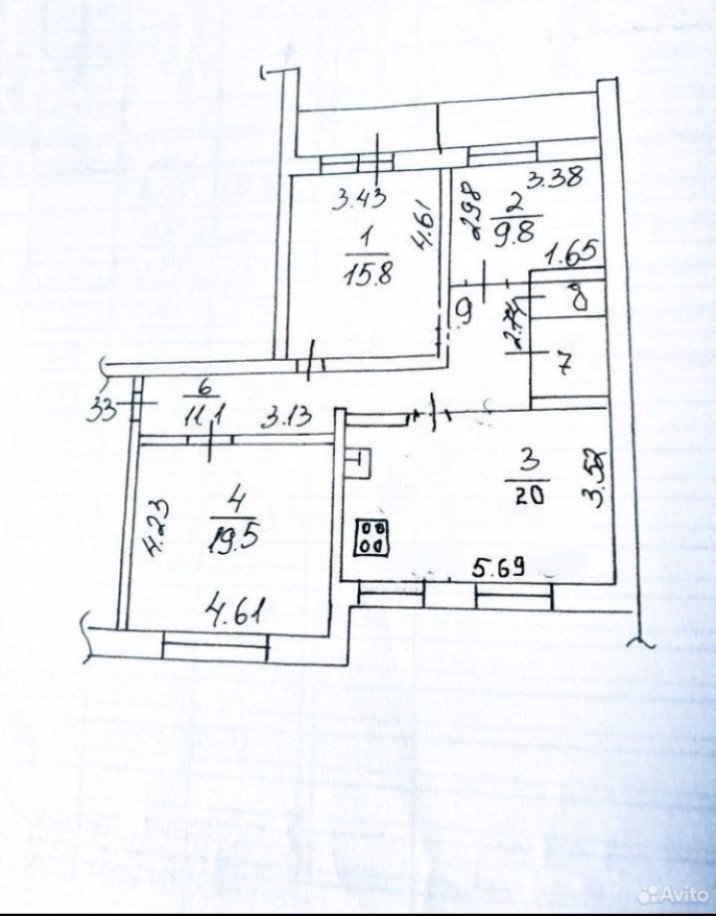 3.38
3.43
2.98
2
9.8
4.61
1
15.8
1.65
8
9
2.74
7
6
11.1
33
3.13
3
20
3.52
4
19.5
4.23
5.69
4.61
Avito